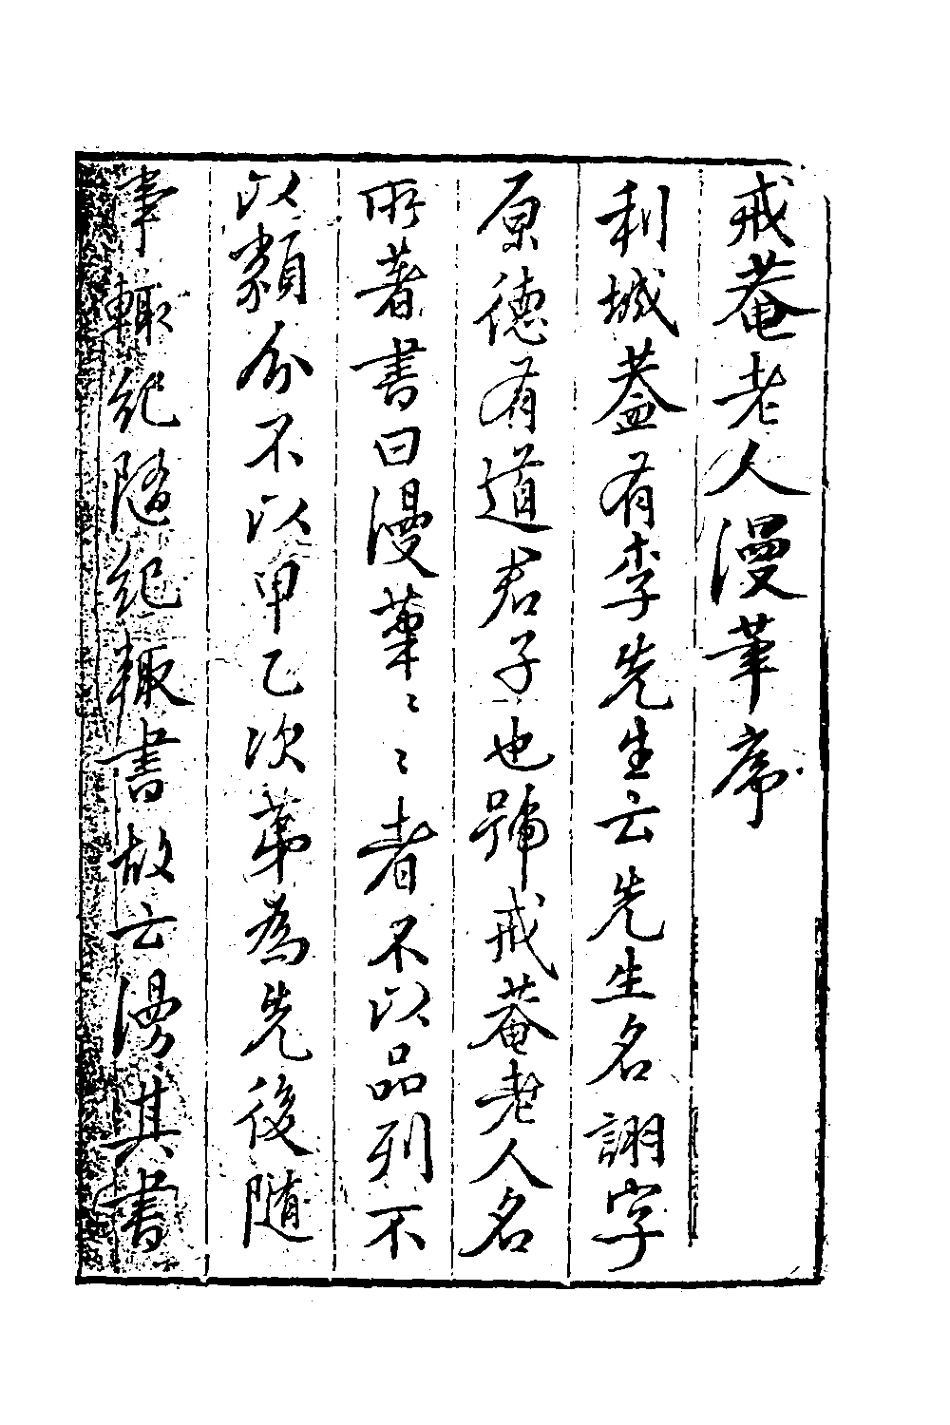 戒菴老人漫筆序
利城蓋有李先生云先生名詡字
原德有道君子也號戒菴老人名
所著書曰漫筆〻〻者不以品列不
以類分不以甲乙次第為先後隨
事輙紀隨紀輙書故云漫其書